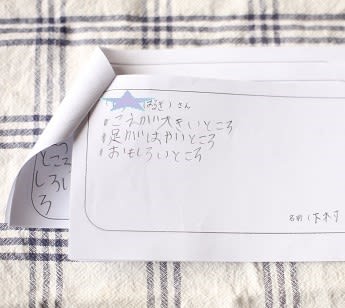 はるき）さん
#こえが大きいところ
#足がはやいところ
#おもしろいところ
名前（下木寸
ところ
しろい
ろ